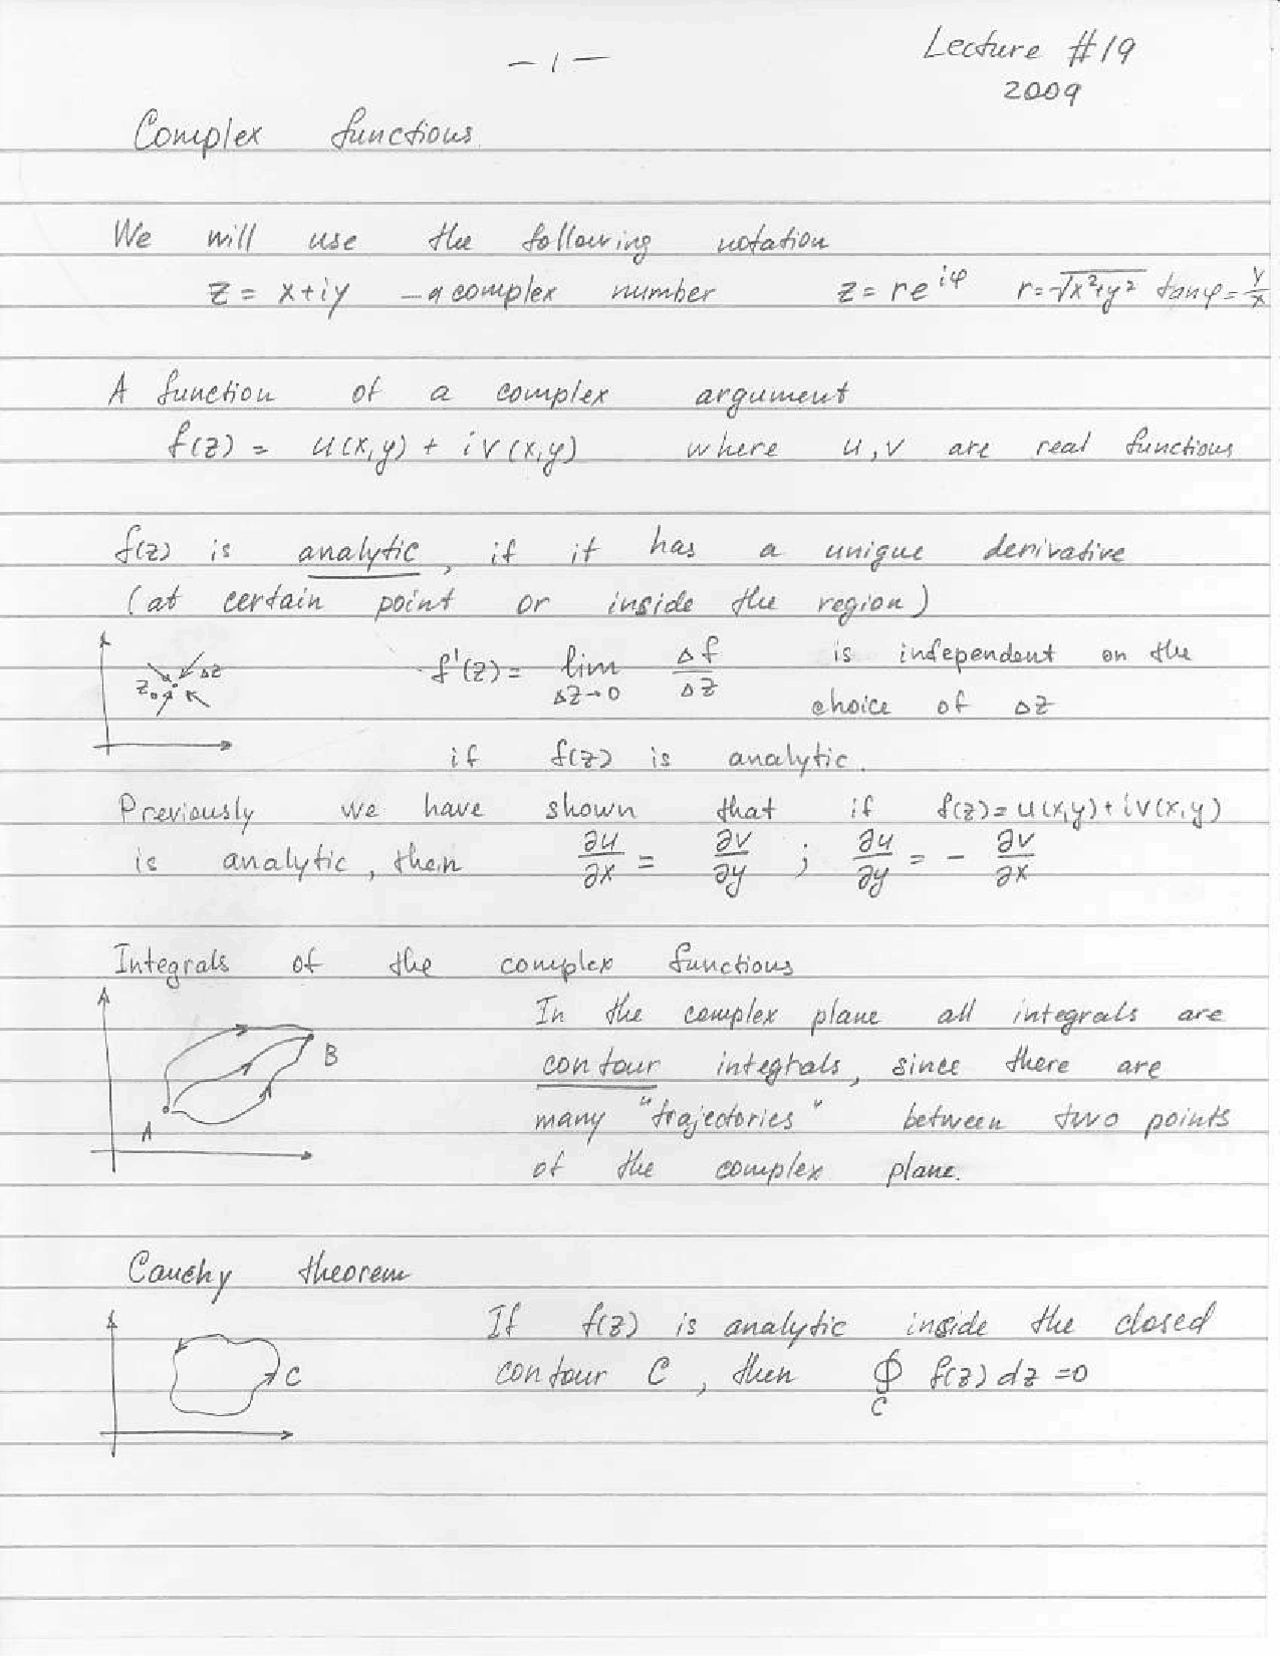 Lecture #19
— 1 —
2009
Complex functions.
We will use the following notation
z = x+iy — a complex number z = re^{iφ} r = √(x²+y²) tanφ = y/x
A function of a complex argument
f(z) = u(x,y) + iv(x,y) where u,v are real functions
f(z) is analytic, if it has a unique derivative
(at certain point or inside the region)
Δz
z₀
f'(z) = lim_{Δz→0} Δf/Δz is independent on the
choice of Δz
if f(z) is analytic.
Previously we have shown that if f(z) = u(x,y) + iv(x,y)
is analytic, then ∂u/∂x = ∂v/∂y ; ∂u/∂y = - ∂v/∂x
Integrals of the complex functions
In the complex plane all integrals are
B
contour integrals, since there are
many "trajectories" between two points
A
of the complex plane.
Cauchy theorem
If f(z) is analytic inside the closed
C
contour C, then ∮_C f(z) dz = 0